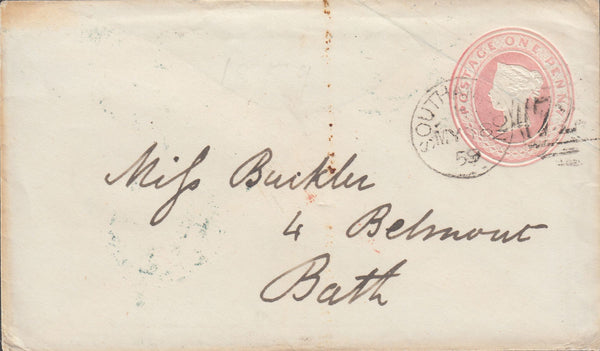 POSTAGE ONE PENNY
SOUTH
MY
59
Miſs Buckler
4 Belmont
Bath